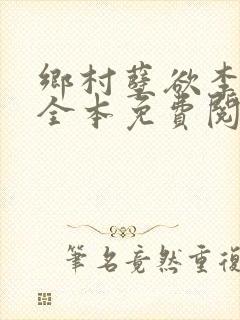 鄉村孽欲李
全本免費閱
筆名竟然重復